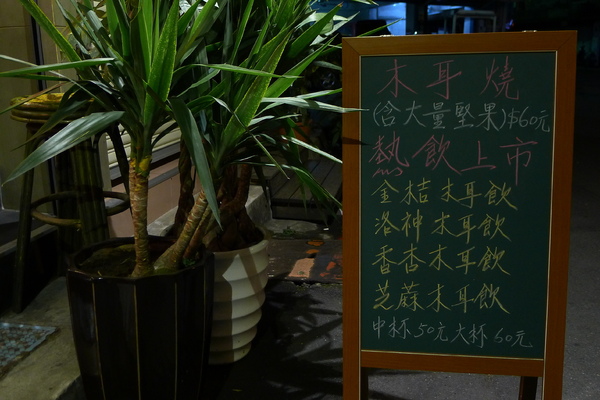 木耳燒
(含大量堅果)$60元
熱飲上市
金桔木耳飲
洛神木耳飲
香杏木耳飲
芝蔴木耳飲
中杯50元大杯60元